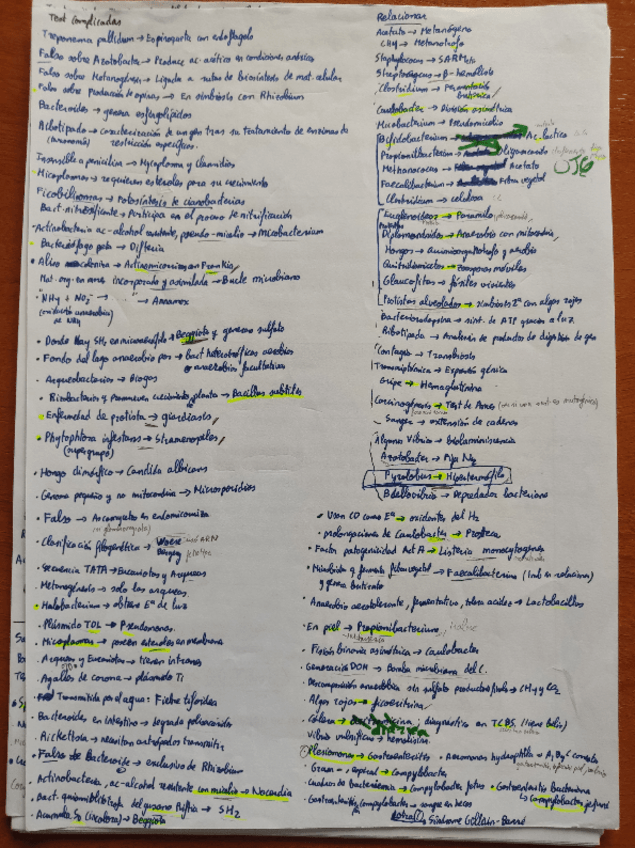 Test complicadas
Treponema pallidum → Espiroqueta con endoflagelo
Falso sobre Azotobacter → Produce ac. acético en condiciones anóxicas
Falso sobre Metanogénesis → Ligada a rutas de biosíntesis de mat. celular
Falso sobre producción de opinas → En simbiosis con Rhizobium
Bacteroides → genera esfingolípidos
Ribotipado → caracterización de un gen tras su tratamiento de enzimas de
(taxonomía) restricción específicas.
Insensible a penicilina → Mycoplasma y Clamidias
Micoplasmas → requieren esteroles para su crecimiento
Ficobilisomas → Fotosíntesis de cianobacterias
Bact. nitrosificante → Participa en el proceso de nitrificación
Actinobacteria ac-alcohol resistente, pseudo-micelio → Micobacterium
Bacteriófago beta → Difteria
Aliso → Actinomicorrizas → Frankia
Mat. org. en mares incorporada y asimilada → Bucle microbiano
NH4 + NO2 → Anammox
(oxidación anaerobia de NH4)
Donde hay SH2 en microaerófilo → Beggiatoa y genera sulfato
Fondo del lago anaerobio por → bact. heterótroficas aerobias
o anaerobias facultativas
Arqueobacterias → Biogas
Rizobacterias y promueven crecimiento planta → Bacillus subtilis
Enfermedad de protista → giardiasis
Phytophtora infestans → Stramenopilos
(supergrupo)
Hongo dimórfico → Candida albicans
Genoma pequeño y no mitocondria → Microsporidios
Falso → Ascomycetos en endomicorriza
(si glomeromycota)
Clasificación filogenética → Woese ARN
Bergey fenotipo
Secuencia TATA → Eucariotas y Arqueas
Metanogénesis → solo las arqueas.
Halobacterium → obtiene Eª de luz
Plásmido TOL → Pseudomonas.
Micoplasmas → poseen esteroles en membrana
Arqueas y Eucariotas → tienen intrones
Agallas de corona → plásmido Ti
Transmitida por el agua: Fiebre tifoidea
Bacteroides en intestino → degrada polisacáridos
Rickettsia → necesitan artrópodos transmitir.
Falso de Bacteroide → exclusivo de Rhizobium
Actinobacteria, ac-alcohol resistente con micelio → Nocardia
Bact. quimiolitotrofa del gusano Riftia → SH2
Acumula So (incolora) → Beggiatoa
Relacionar
Acetato → Metanógeno
CH4 → Metanotrofo
Staphylococcus → SARM
Streptococcus → β-hemólisis
Clostridium → Fermentación butírica
Caulobacter → División asimétrica
Micobacterium → Pseudomicelio
Bifidobacterium → Ac. láctico
Propionibacterium → oligosacárido
Methanococcus → Acetato
Faecalibacterium → Fibra vegetal
OJO
Clostridium → celulosa
Euglenoideos → Paramilo
Diplomonadidos → Anaerobio con mitosoma
Hongos → Quimioorganotrofo y aerobio
Quitridiomicetos → Zoosporas móviles
Glaucofitas → fósiles vivientes
Protistas alveolados → simbiosis 2ª con algas rojas
Bacteriorrodopsina → sint. de ATP gracias a luz
Ribotipado → Analisis de productos de digestión de gen
Transcriptómica → Expresión génica
Gripe → Hemaglutinina
Carcinogénesis → Test de Ames
Sanger → extensión de cadenas
Algunos Vibrio → Bioluminiscencia
Azotobacter → Fija N2
Pyrolobus → Hipertermófilo
Bdellovibrio → Depredador bacteriano
Usan CO como Eª → oxidantes del H2
prolongaciones de Caulobacter → Prosteca
Factor patogenicidad Act A → Listeria monocytogenes
Microbiota y fermenta fibra vegetal → Faecalibacterium
y genera butirato
Anaerobio aerotolerante, fermentativo, tolera acidos → Lactobacillus
En piel → Propionibacterium
Fisión binaria asimétrica → Caulobacter
Generación DOM → Bomba microbiana del C.
Descomposición anaerobia sin sulfato productos finales → CH4 y CO2
Algas rojas → ficoeritrina
Cólera → diagnóstico en TCBS (tiene bilis)
Vibrio vulnificus → hemolisina.
Plesiomonas → Gastroenteritis
Aeromonas hydrophila →
Gram -, espiral → Campylobacter
Cuadro de bacteriemia → Campylobacter fetus
Gastroenteritis bacteriana
↳ Campylobacter jejuni
Gastroenteritis Campylobacter → sangre en heces
Síndrome Guillain-Barré